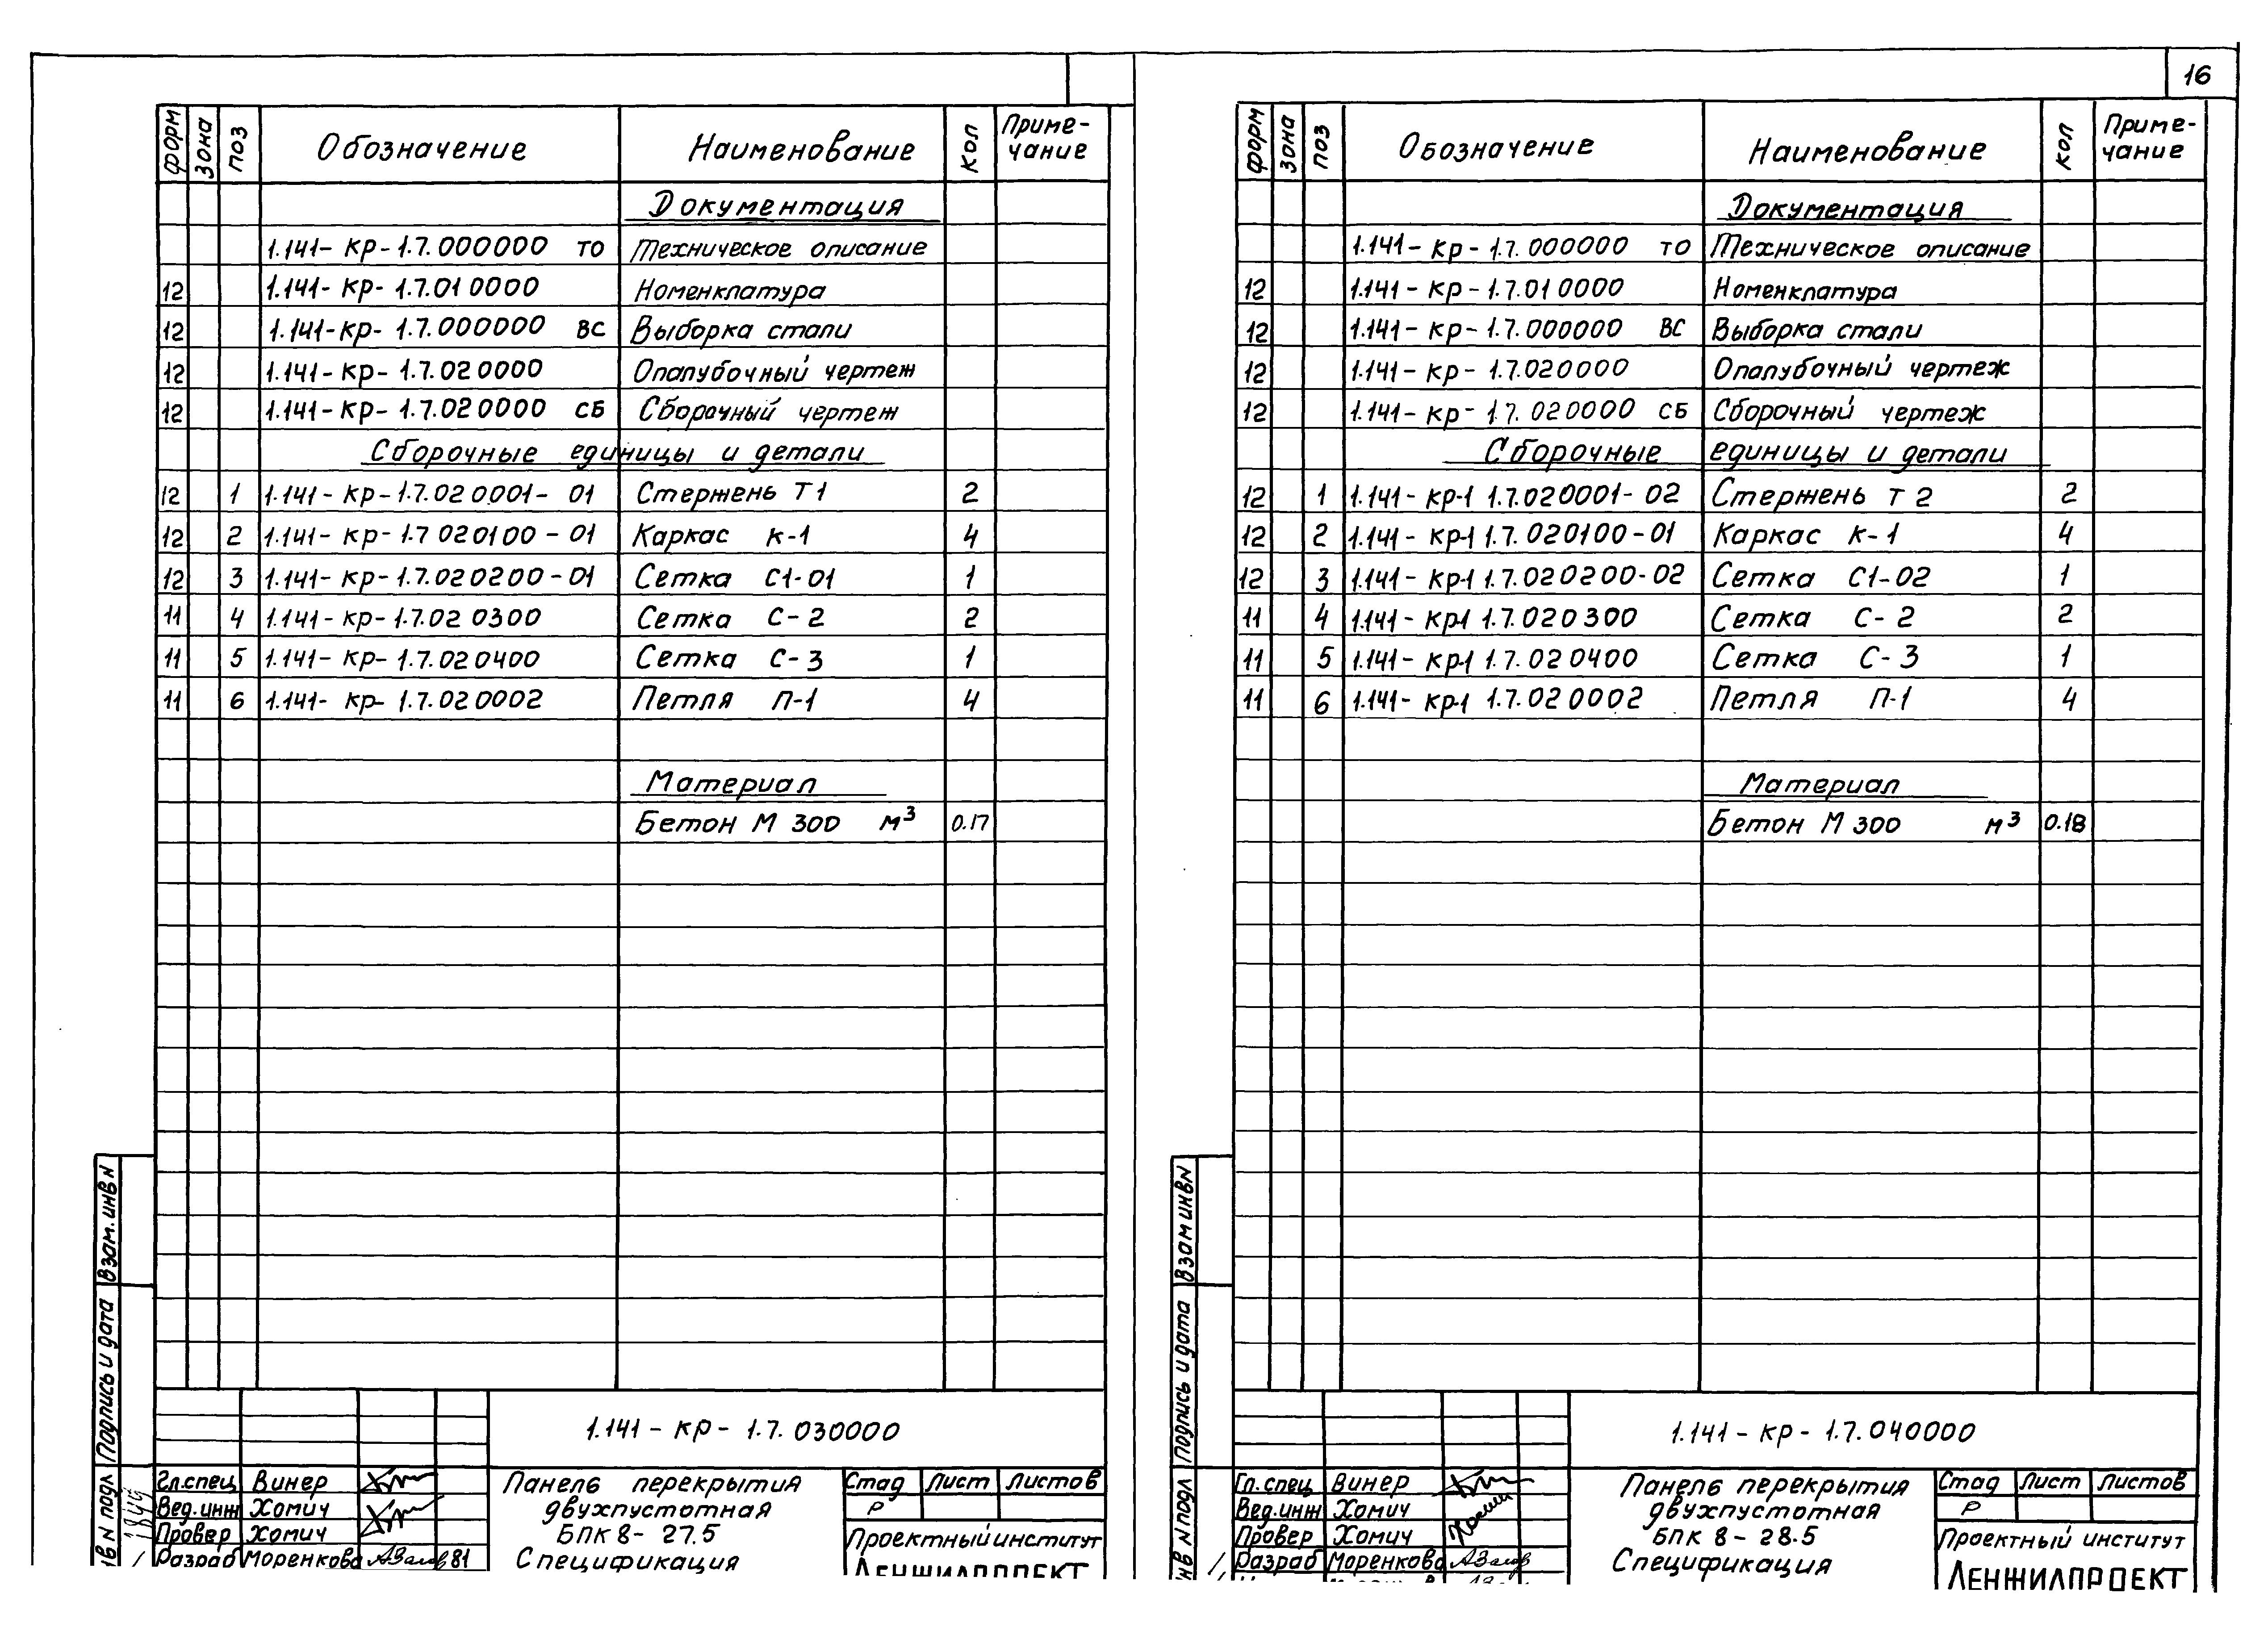 16
форм зона поз Обозначение Наименование кол Приме-
чание
Документация
1.141-кр-1.7.000000 ТО Техническое описание
12 1.141-кр-1.7.010000 Номенклатура
12 1.141-кр-1.7.000000 ВС Выборка стали
12 1.141-кр-1.7.020000 Опалубочный чертеж
12 1.141-кр-1.7.020000 СБ Сборочный чертеж
Сборочные единицы и детали
12 1 1.141-кр-1.7.020001-01 Стержень Т1 2
12 2 1.141-кр-1.7 020100-01 Каркас к-1 4
12 3 1.141-кр-1.7.020200-01 Сетка С1-01 1
11 4 1.141-кр-1.7.020300 Сетка С-2 2
11 5 1.141-кр-1.7.020400 Сетка С-3 1
11 6 1.141-кр-1.7.020002 Петля П-1 4
Материал
Бетон М 300 м³ 0.17
Взам.инв N
Подпись и дата
нв N подл
1.141-кр-1.7.030000
Гл.спец Винер
Вед.инж Хомич
Провер Хомич
Разраб Моренкова 81
Панель перекрытия
двухпустотная
БПК 8-27.5
Спецификация
Стад Лист Листов
Р
Проектный институт
ЛЕНЖИЛПРОЕКТ
форм зона поз Обозначение Наименование кол Приме-
чание
Документация
1.141-кр-1.7.000000 ТО Техническое описание
12 1.141-кр-1.7.010000 Номенклатура
12 1.141-кр-1.7.000000 ВС Выборка стали
12 1.141-кр-1.7.020000 Опалубочный чертеж
12 1.141-кр-1.7.020000 СБ Сборочный чертеж
Сборочные единицы и детали
12 1 1.141-кр-1 1.7.020001-02 Стержень Т 2 2
12 2 1.141-кр-1 1.7.020100-01 Каркас К-1 4
12 3 1.141-кр-1 1.7.020200-02 Сетка С1-02 1
11 4 1.141-кр-1 1.7.020300 Сетка С-2 2
11 5 1.141-кр-1 1.7.020400 Сетка С-3 1
11 6 1.141-кр-1 1.7.020002 Петля П-1 4
Материал
Бетон М 300 м³ 0.18
Взам инв N
Подпись и дата
нв N подл
1.141-кр-1.7.040000
Гл.спец Винер
Вед.инж Хомич
Провер Хомич
Разраб Моренкова
Панель перекрытия
двухпустотная
БПК 8-28.5
Спецификация
Стад Лист Листов
Р
Проектный институт
ЛЕНЖИЛПРОЕКТ